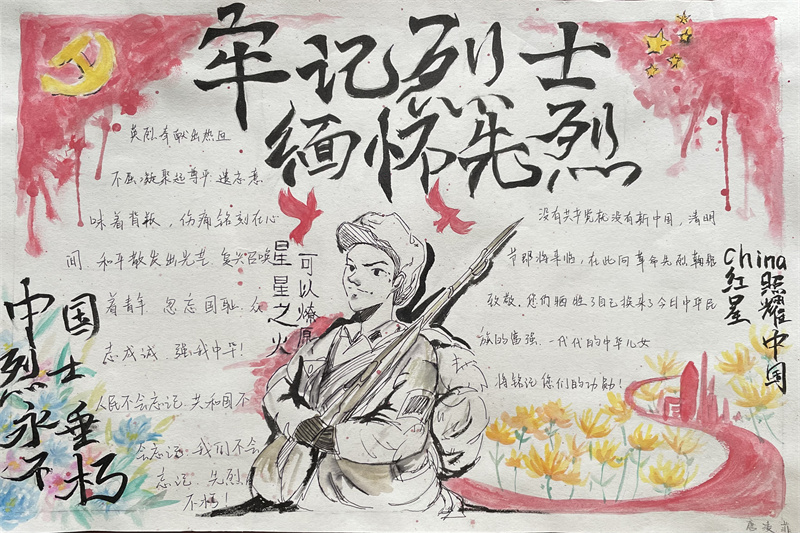 牢记烈士
缅怀先烈
英烈奉献出热血
不屈凝聚起尊平遗忘意
味着背叛，伤痛铭刻在心
间 和平散发出光芒 复兴召唤
着青年 忽忘国耻 众
志成诚 强我中华！
人民不会忘记 共和国不
会忘记 我们不会
忘记 先烈
不朽！
星星之火
可以燎原
没有共产党就没有新中国，清明
节即将来临，在此向革命先烈
致敬，您们牺牲了自己换来了今日中华民
族的富强，一代代的中华儿女
将铭记您们的功勋！
China
红星
照耀中国
中国
烈士
永垂
不朽